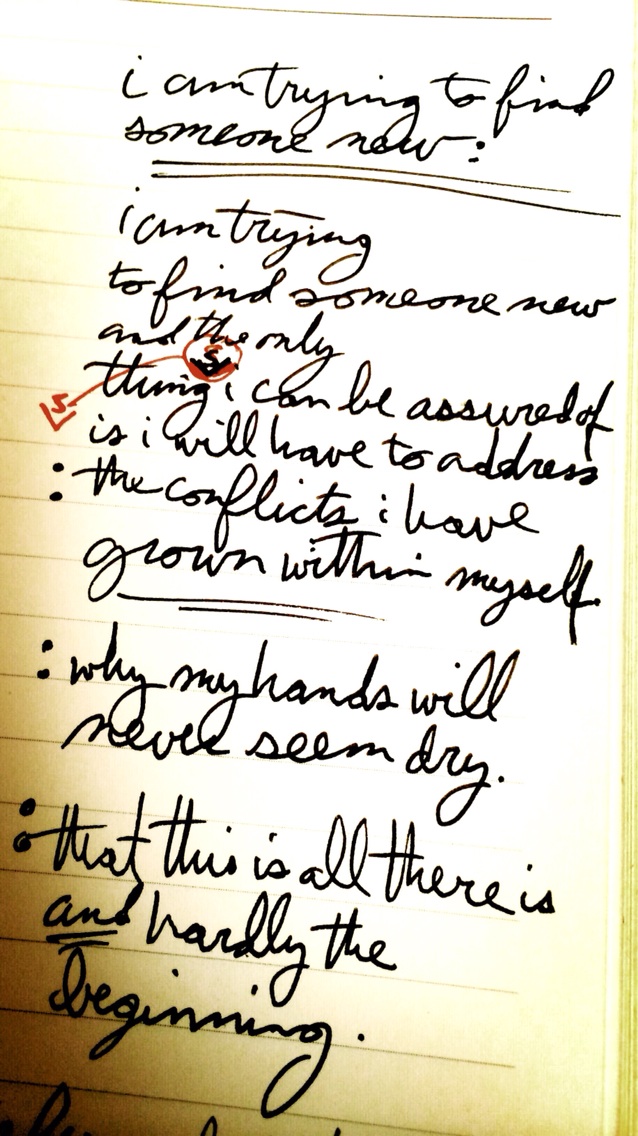 i am trying to find
someone new:
i am trying
to find someone new
and the only
thing i can be assured of
is i will have to address
: the conflicts i have
grown within myself.
: why my hands will
never seem dry.
: that this is all there is
and hardly the
beginning.